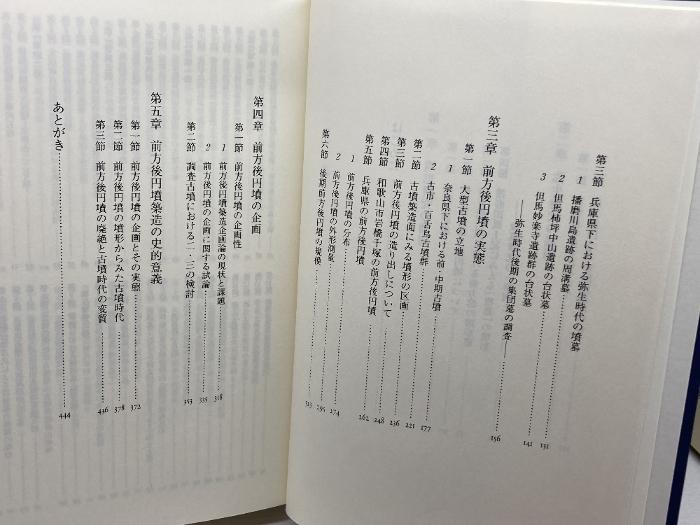 第三節 兵庫県下における弥生時代の墳墓
1 播磨川島遺跡の周溝墓 131
2 但馬柿坪中山遺跡の台状墓 141
3 但馬妙楽寺遺跡群の台状墓
――弥生時代後期の集団墓の調査―― 156
第三章 前方後円墳の実態
第一節 大型古墳の立地
1 奈良県下における前・中期古墳 177
2 古市・百舌鳥古墳群 221
第二節 古墳築造面にみる墳形の区画 236
第三節 前方後円墳の造り出しについて 248
第四節 和歌山市岩橋千塚の前方後円墳 262
第五節 兵庫県の前方後円墳
1 前方後円墳の分布 274
2 前方後円墳の外形測量 295
第六節 後期前方後円墳の規模 313
第四章 前方後円墳の企画
第一節 前方後円墳の企画性
1 前方後円墳築造企画論の現状と課題 318
2 前方後円墳の企画に関する試論 335
第二節 調査古墳における二・三の検討 353
第五章 前方後円墳築造の史的意義
第一節 前方後円墳の企画とその実態 372
第二節 前方後円墳の墳形からみた古墳時代 378
第三節 前方後円墳の廃絶と古墳時代の変質 436
あとがき 444